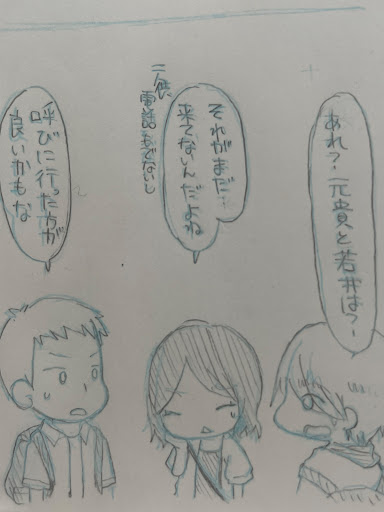 あれ？元貴と若井は？
それがまだ…
来てないんだよね
電話もでないし
呼びに行った方が
良いかもな